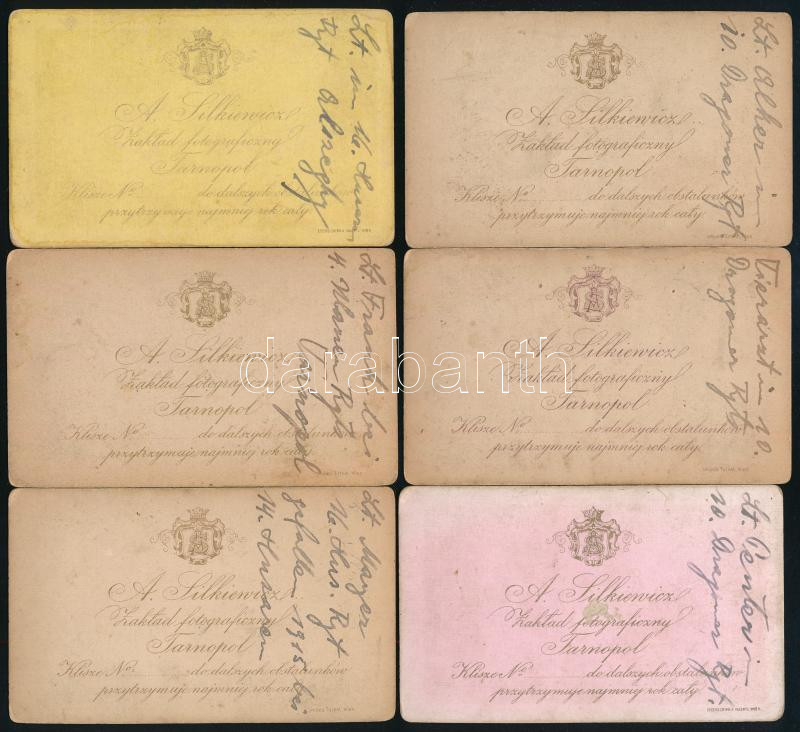 A. Silkiewicz
Zakład fotograficzny
Tarnopol
Klisze No. do dalszych
przytrzymuje najmniej rok cały.
Lt. im 16. Husaren
Rgt
A. Silkiewicz
Zakład fotograficzny
Tarnopol
Klisze No. do dalszych obstalunków
przytrzymuje najmniej rok cały.
Lt. Alher im
10. Dragoner Rgt.
A. Silkiewicz
Zakład fotograficzny
Tarnopol
Klisze No. do dalszych obstalunków
przytrzymuje najmniej rok cały.
Lt Franck bei
4. Ulanen Rgt
Tarnopol
A. Silkiewicz
Zakład fotograficzny
Tarnopol
Klisze No. do dalszych obstalunków
przytrzymuje najmniej rok cały.
Tierarzt im 10.
Dragoner Rgt
A. Silkiewicz
Zakład fotograficzny
Tarnopol
Klisze No. do dalszych obstalunków
przytrzymuje najmniej rok cały.
Lt. Mayer
16. Hus. Rgt
gefallen 1915 bei
14. Husaren
A. Silkiewicz
Zakład fotograficzny
Tarnopol
Klisze No. do dalszych obstalunków
przytrzymuje najmniej rok cały.
Lt. Penter im
10. Dragoner Rgt.
darabanth